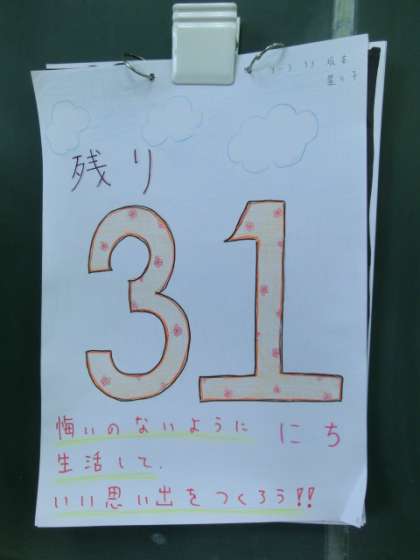 残り
31
にち
悔いのないように
生活して、
いい思い出をつくろう!!